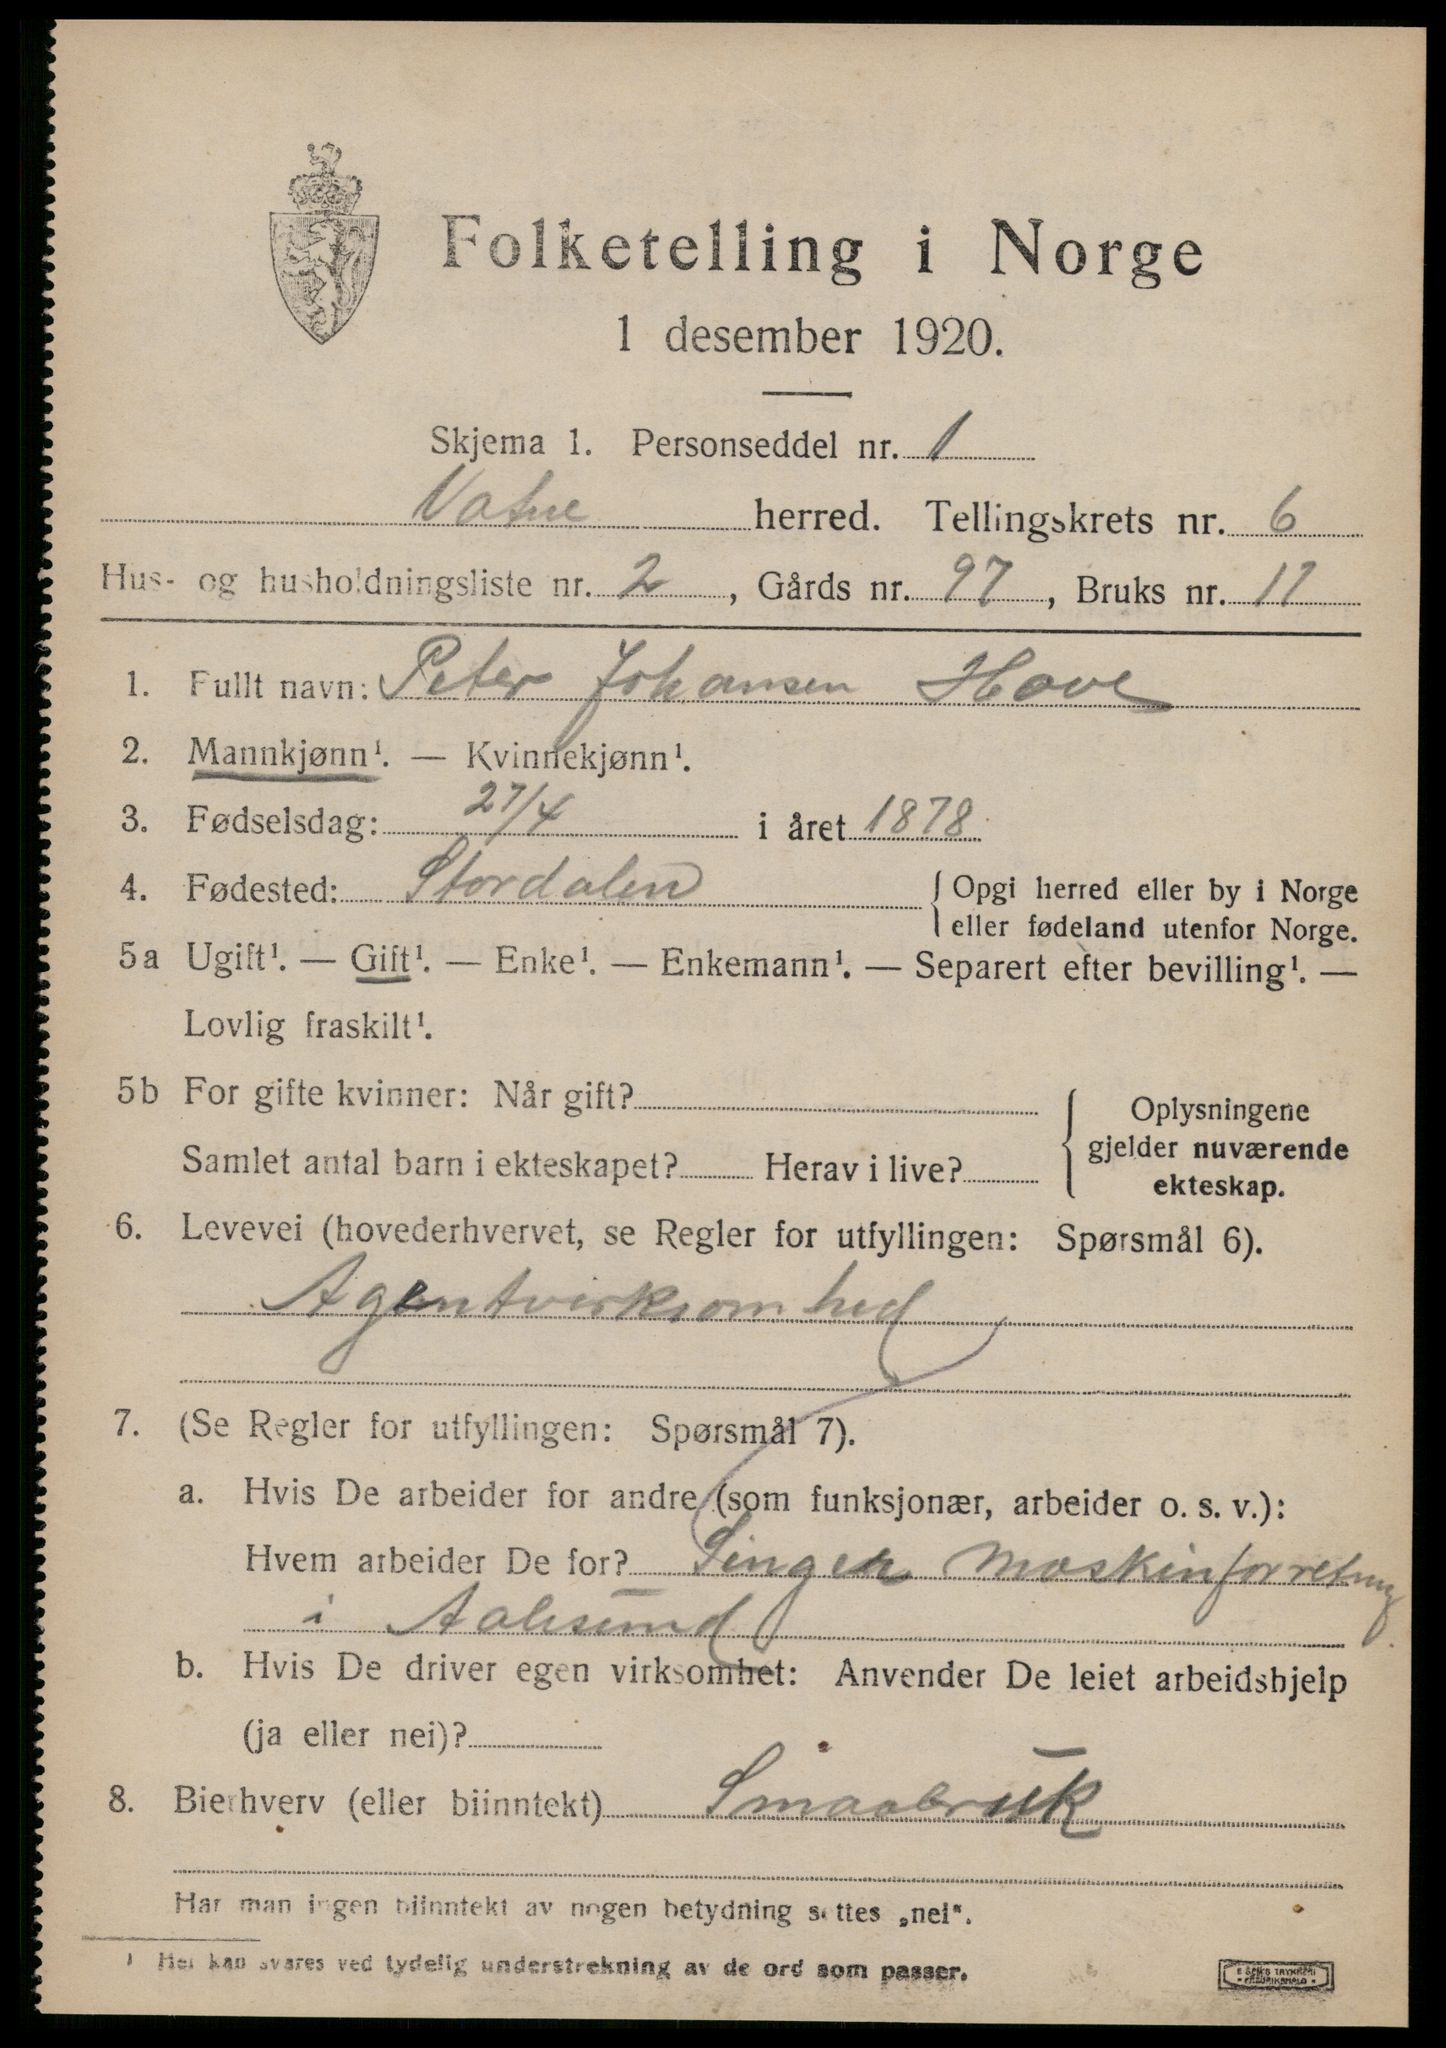 Folketelling i Norge
1 desember 1920.
Skjema 1. Personseddel nr. 1
Vatne herred. Tellingskrets nr. 6
Hus- og husholdningsliste nr. 2, Gårds nr. 97, Bruks nr. 11
1. Fullt navn: Peter Johansen Hove
2. Mannkjønn¹. — Kvinnekjønn¹.
3. Fødselsdag: 27/4 i året 1878
4. Fødested: Stordalen { Opgi herred eller by i Norge
eller fødeland utenfor Norge.
5a Ugift¹. — Gift¹. — Enke¹. — Enkemann¹. — Separert efter bevilling¹. —
Lovlig fraskilt¹.
5b For gifte kvinner: Når gift?
Samlet antal barn i ekteskapet? Herav i live?
Oplysningene
gjelder nuværende
ekteskap.
6. Levevei (hovederhvervet, se Regler for utfyllingen: Spørsmål 6).
Agentvirksomhed
7. (Se Regler for utfyllingen: Spørsmål 7).
a. Hvis De arbeider for andre (som funksjonær, arbeider o. s. v.):
Hvem arbeider De for? Singer Maskinforretning
i Aalesund
b. Hvis De driver egen virksomhet: Anvender De leiet arbeidshjelp
(ja eller nei)?
8. Bierhverv (eller biinntekt) Smaabruk
Har man ingen biinntekt av nogen betydning settes „nei“.
¹ Her kan svares ved tydelig understrekning av de ord som passer.